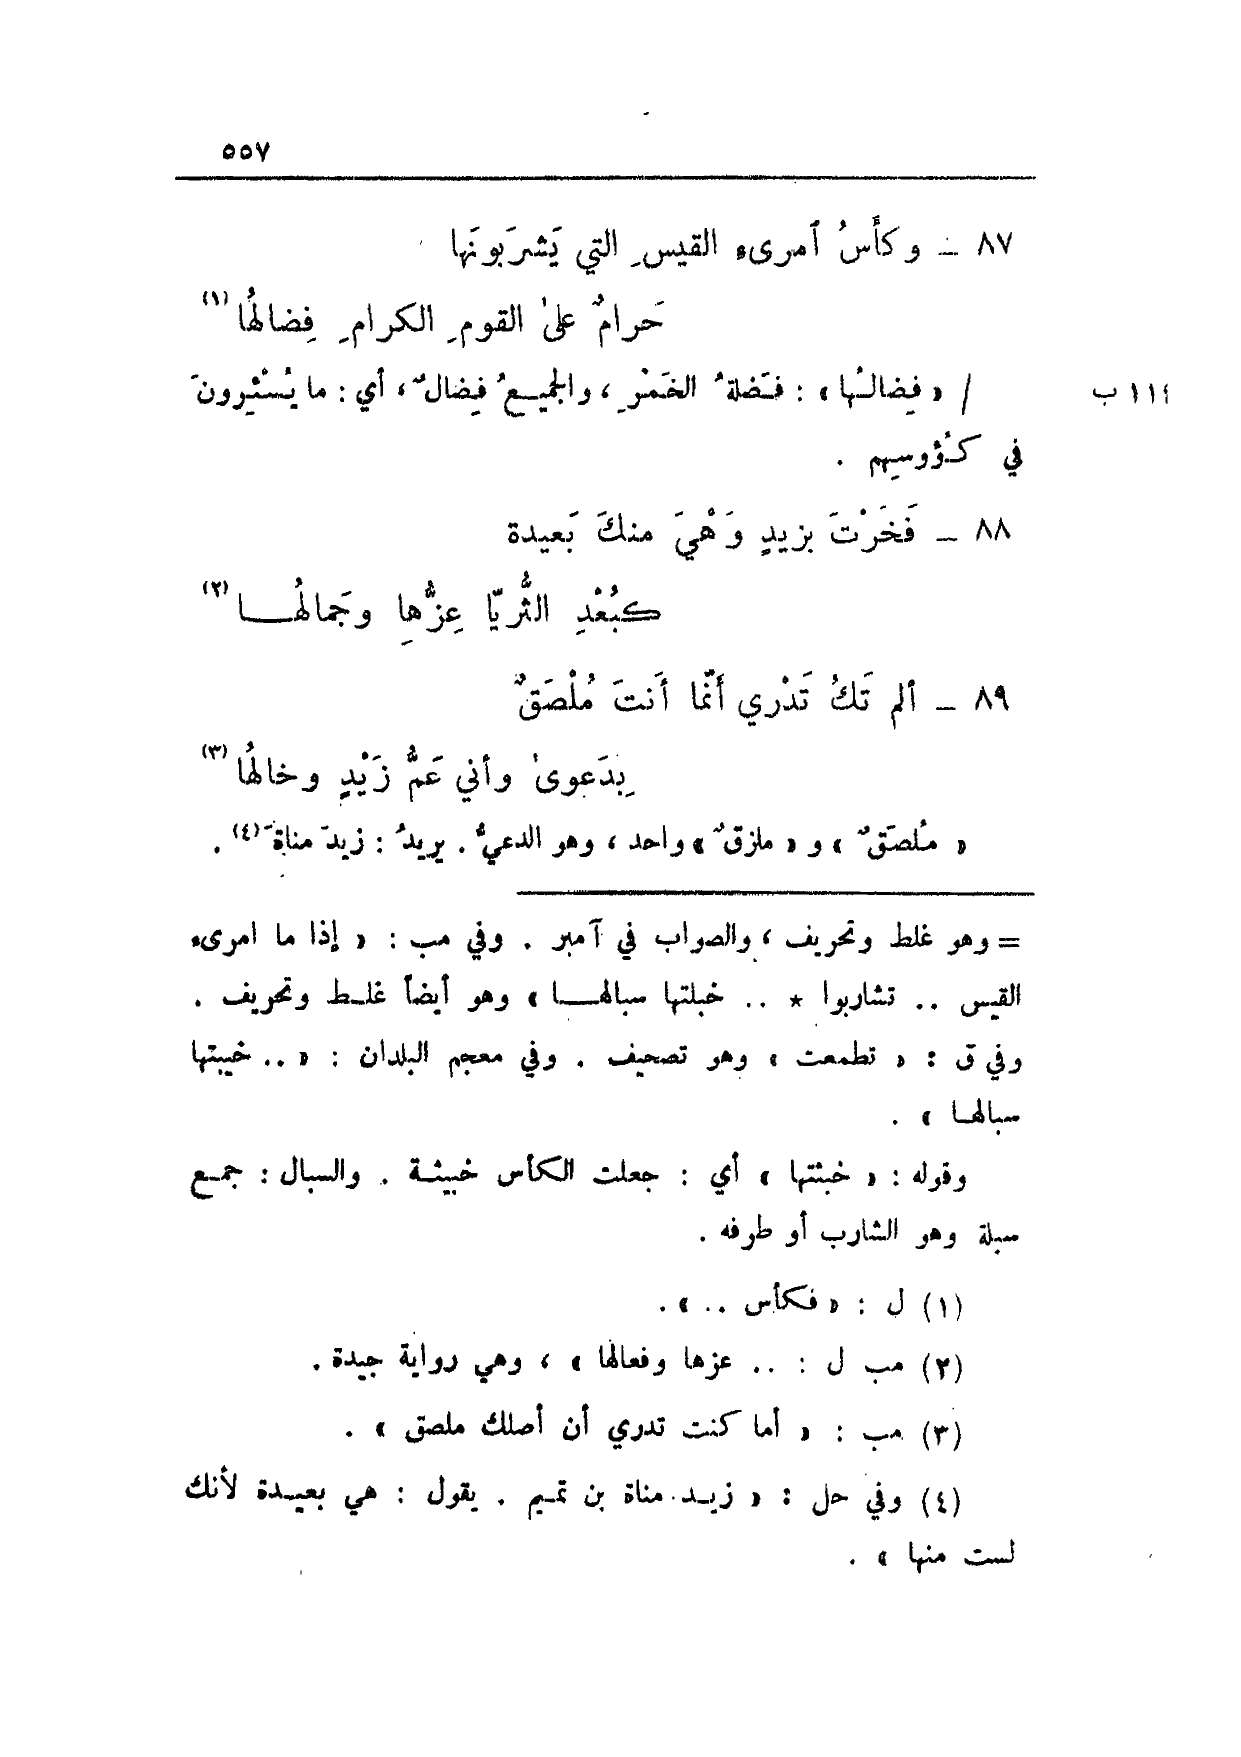 ٥٥٧
٨٧ – وكأسُ ٱمرىء القيسِ التي يَشرَبونَها
حَرامٌ على القومِ الكرامِ فِضالهُا (١)
١١٤ ب / « فِضالـُها » : فـَضلة ُ الخَمْرِ ، والجميـعُ فِضال ٌ ، أي : ما يُسْئِرونَ
في كـُؤوسِهم .
٨٨ – فَخَرْتَ بزيدٍ وَهْيَ منكَ بَعيدة
كبُعْدِ الثُّريّا عِزُّها وجَمالهُـــا (٢)
٨٩ – ألم تَكُ تَدْري أنّما أَنتَ مُلْصَقٌ
بِدَعوى وأني عَمُّ زَيْدٍ وخالهُا (٣)
« مُلصَق ٌ » و « ملزق ٌ » واحد ، وهو الدعيُّ . يريدُ : زيدَ مناة َ (٤) .
= وهو غلط وتحريف ، والصواب في آمبر . وفي مب : « إذا ما امرىء
القيس .. تشاربوا * .. خبلتها سبالهـــا » وهو أيضاً غلــط وتحريف .
وفي ق : « تطمعت » وهو تصحيف . وفي معجم البلدان : « .. خيبتها
سبالهـا » .
وقوله : « خبثتها » أي : جعلت الكأس خبيثـة . والسبال : جمـع
سبلة وهو الشارب أو طرفه .
(١) ل : « فكأس .. » .
(٢) مب ل : .. عزها وفعالها » ، وهي رواية جيدة .
(٣) مب : « أما كنت تدري أن أصلك ملصق » .
(٤) وفي حل : « زيــد مناة بن تمـيم . يقول : هي بعيــدة لأنك
لست منها » .